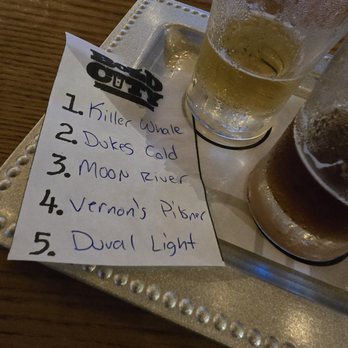 BOLD
CITY
1. Killer Whale
2. Dukes Cold
3. Moon River
4. Vernon's Pilsner
5. Duval Light